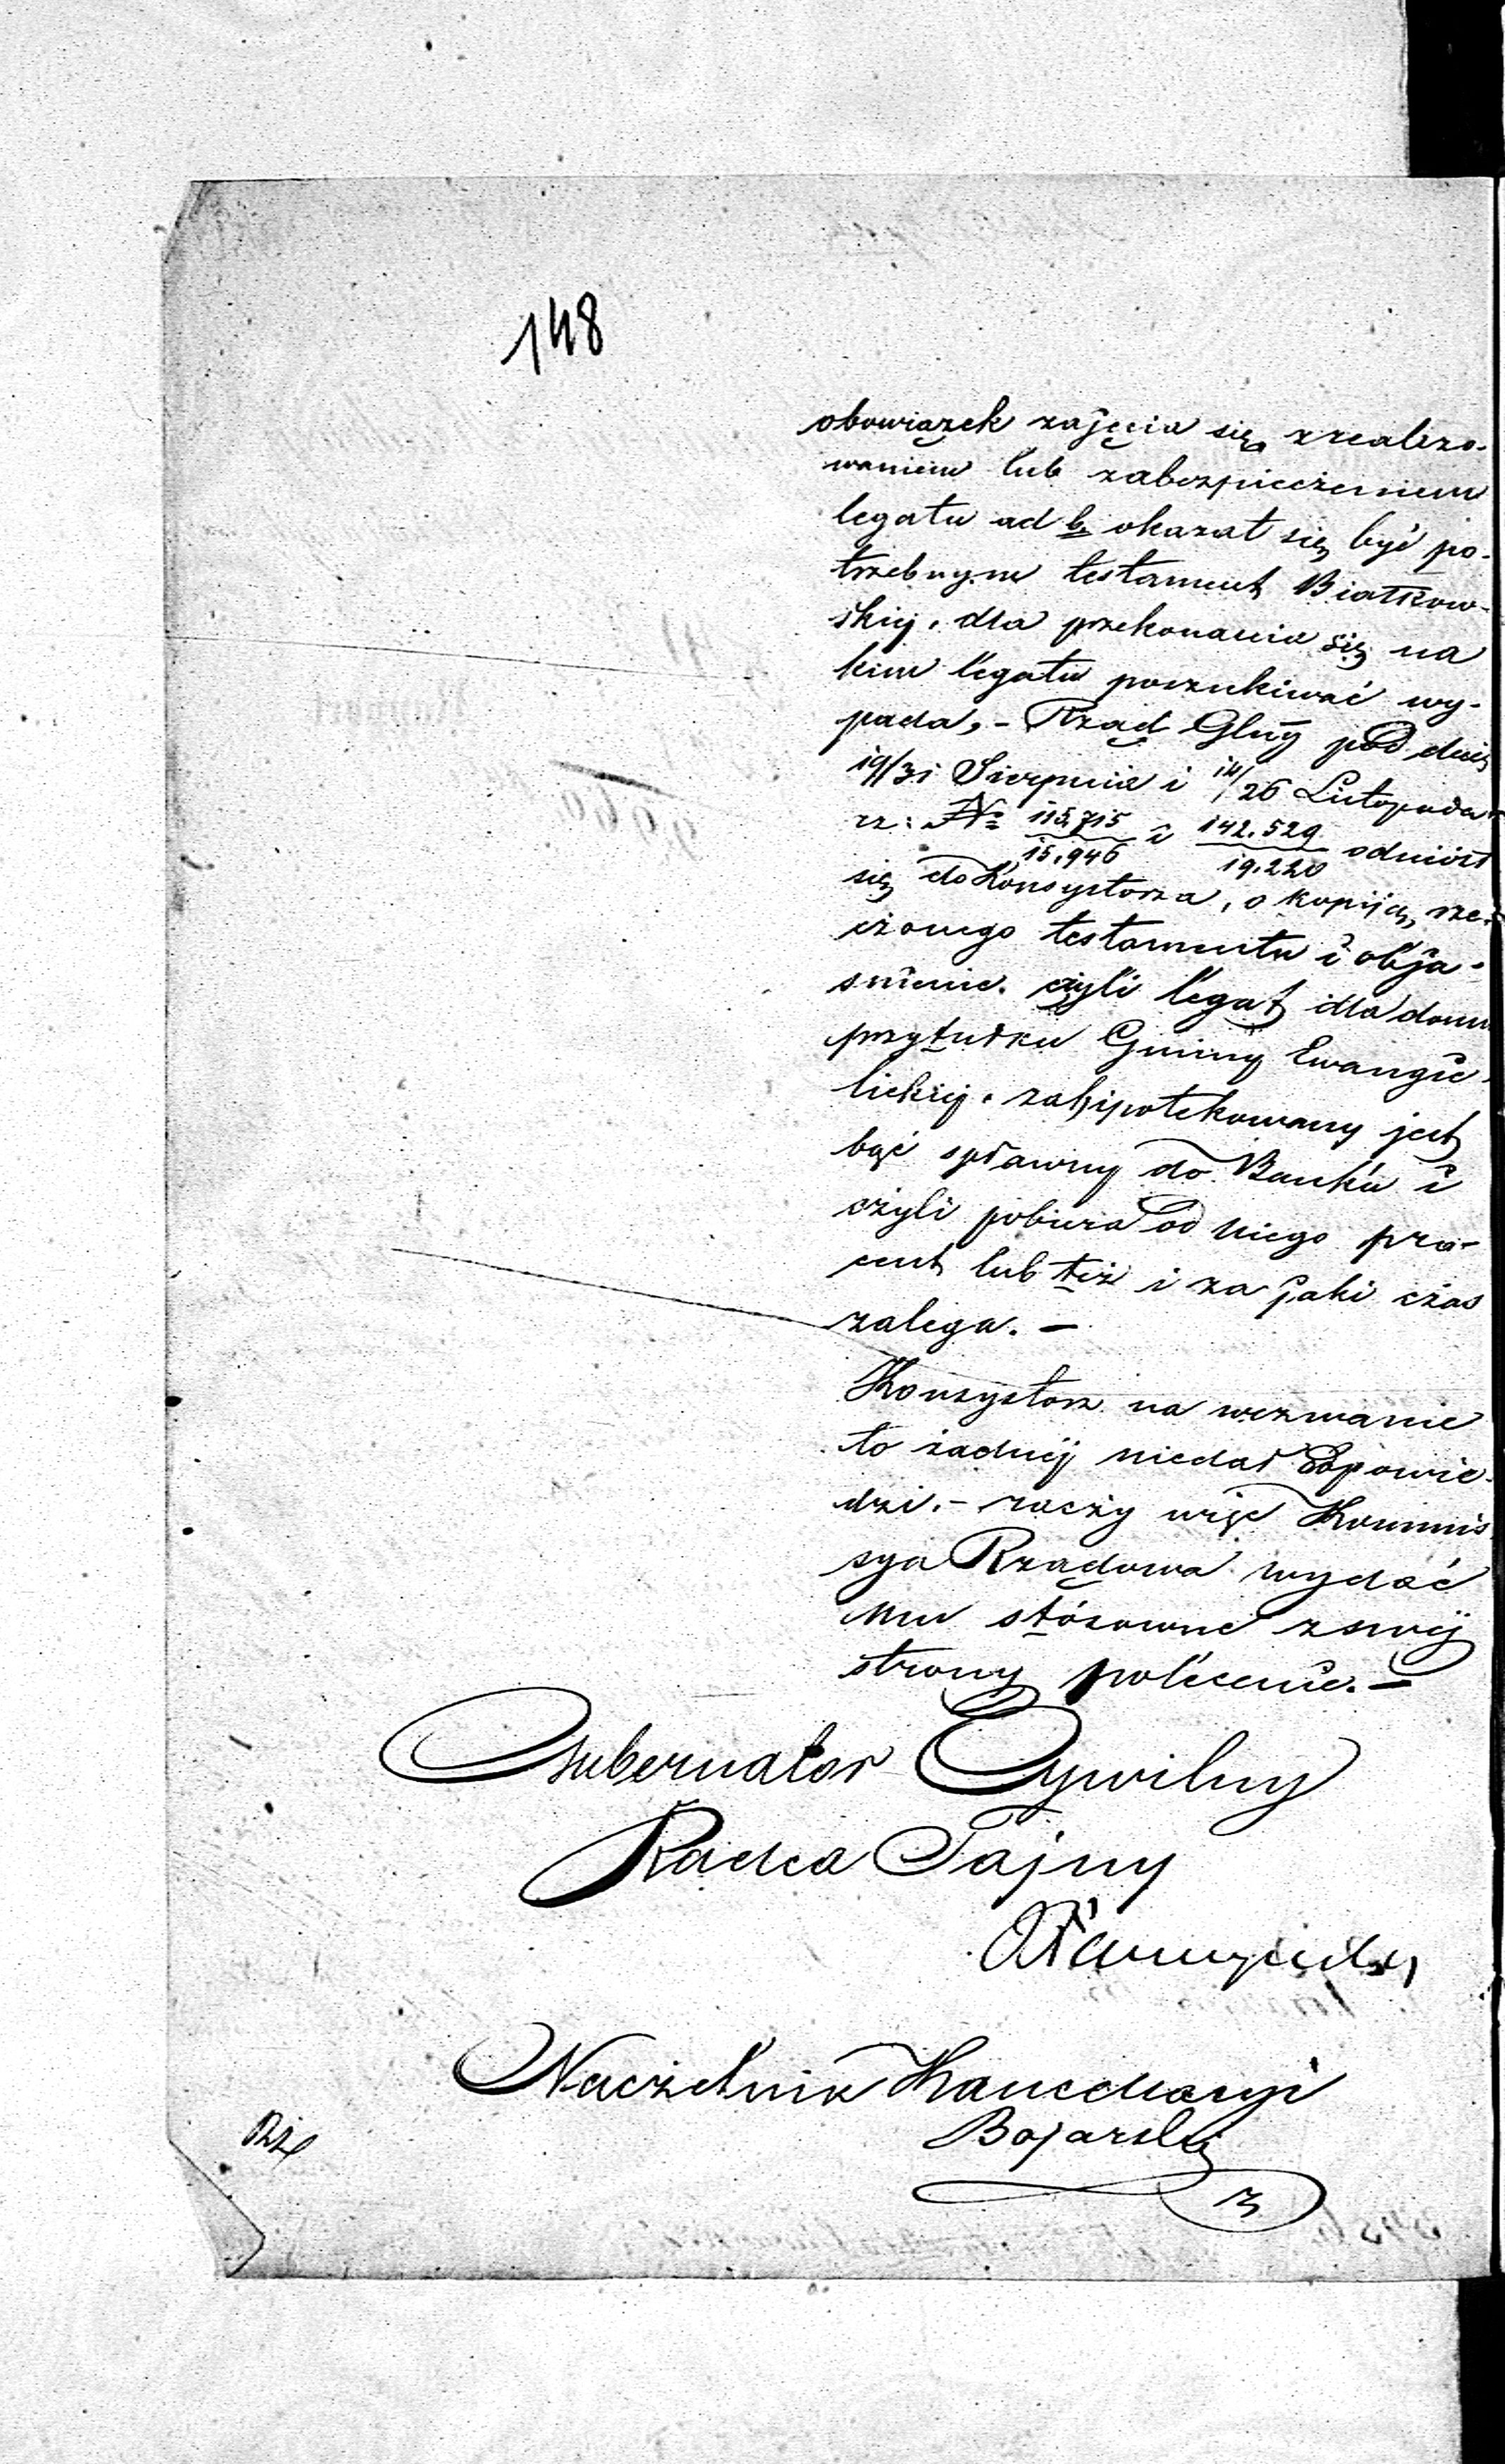 148
obowiązek zajęcia się zrealizo-
waniem lub zabezpieczeniem
legatu ad b. okazał się być po-
trzebnym testament Białkow-
skiej, dla przekonania się na
kim legatu poszukiwać wy-
pada, - Rząd Glny pod dniem
19/31 Sierpnia i 14/26 Listopada
rz: No 115.715/15.946 i 142.529/19.220 odniósł
się do Konsystorza, o kopiją rze-
czonego testamentu i obja-
śnienie. czyli legat dla domu
przytułku Gminy Ewangie-
lickiej. zahipotekowany jest
być spławny do Banku i
czyli pobiera od niego pro-
cent lub też i za jaki czas
zalega. -
Konsystorz na wezwanie
to żadnej niedał odpowie-
dzi. - raczy więc Kommis
sya Rządowa wydać
mu stósowne z swej
strony polecenie. -
Gubernator Cywilny
Radca Tajny
Naczelnik Kancellaryi
Bojarski